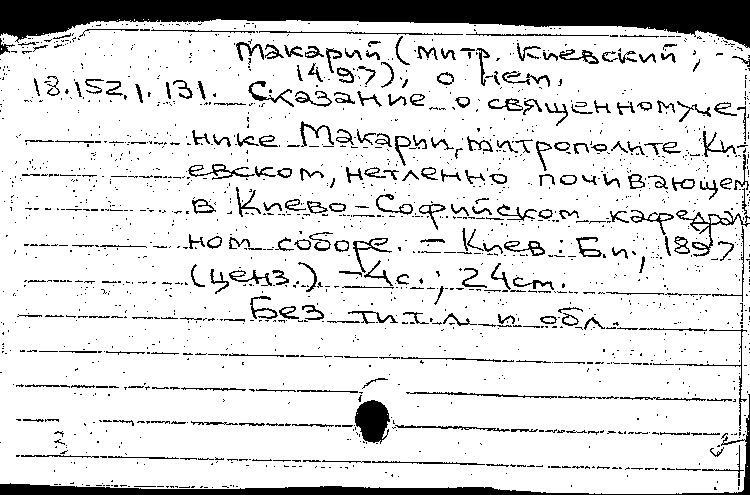 Макарий (митр. Киевский ; -
1497); о нем.
18.152.1.131. Сказание о священномуче-
нике Макарии, митрополите Ки-
евском, нетленно почивающем
в Киево-Софийском кафедраль-
ном соборе. - Киев : Б.и., 1897
(ценз.). - 4 с. ; 24 см.
Без тит. л. и обл.